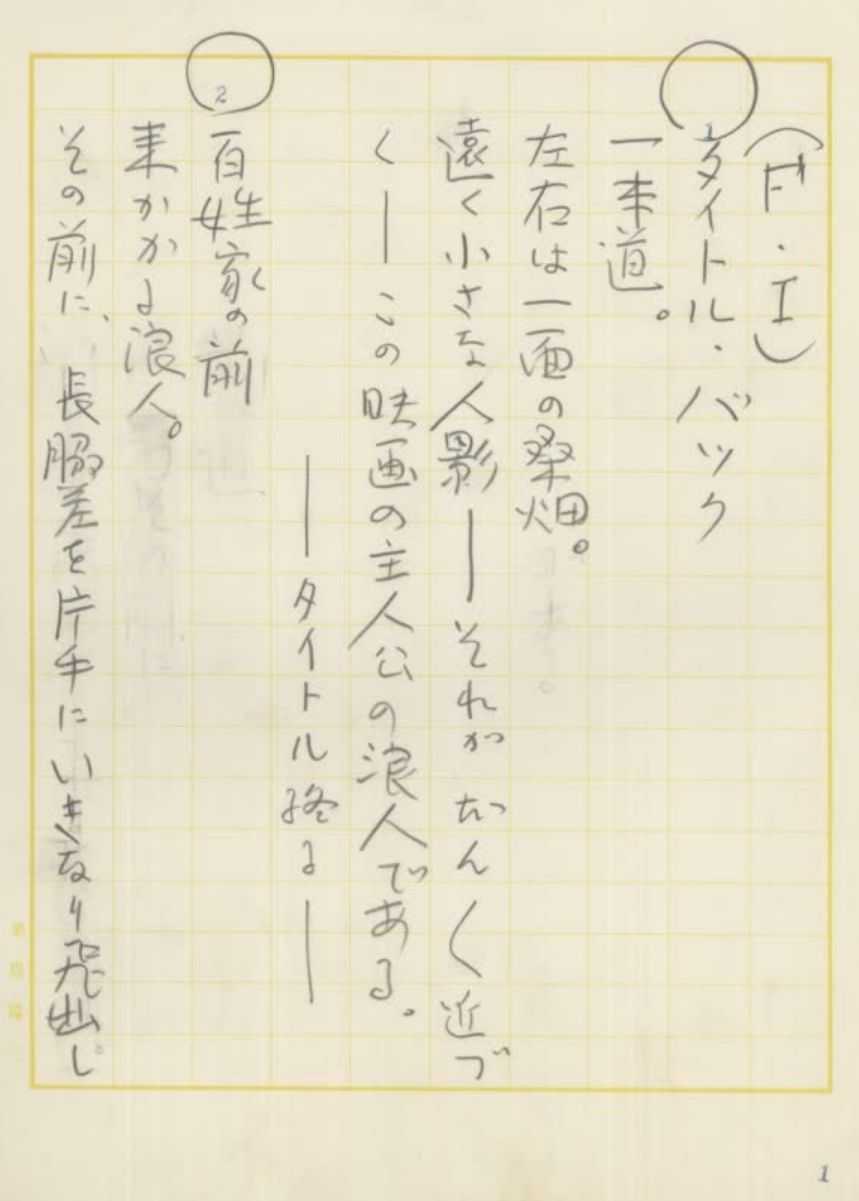 (F・I)
1
タイトル・バック
一本道。
左右は一面の桑畑。
遠く小さな人影――それがだん〱近づ
く――この映画の主人公の浪人である。
――タイトル終る――
2
百姓家の前
来かかる浪人。
その前に、長脇差を片手にいきなり飛出し
1